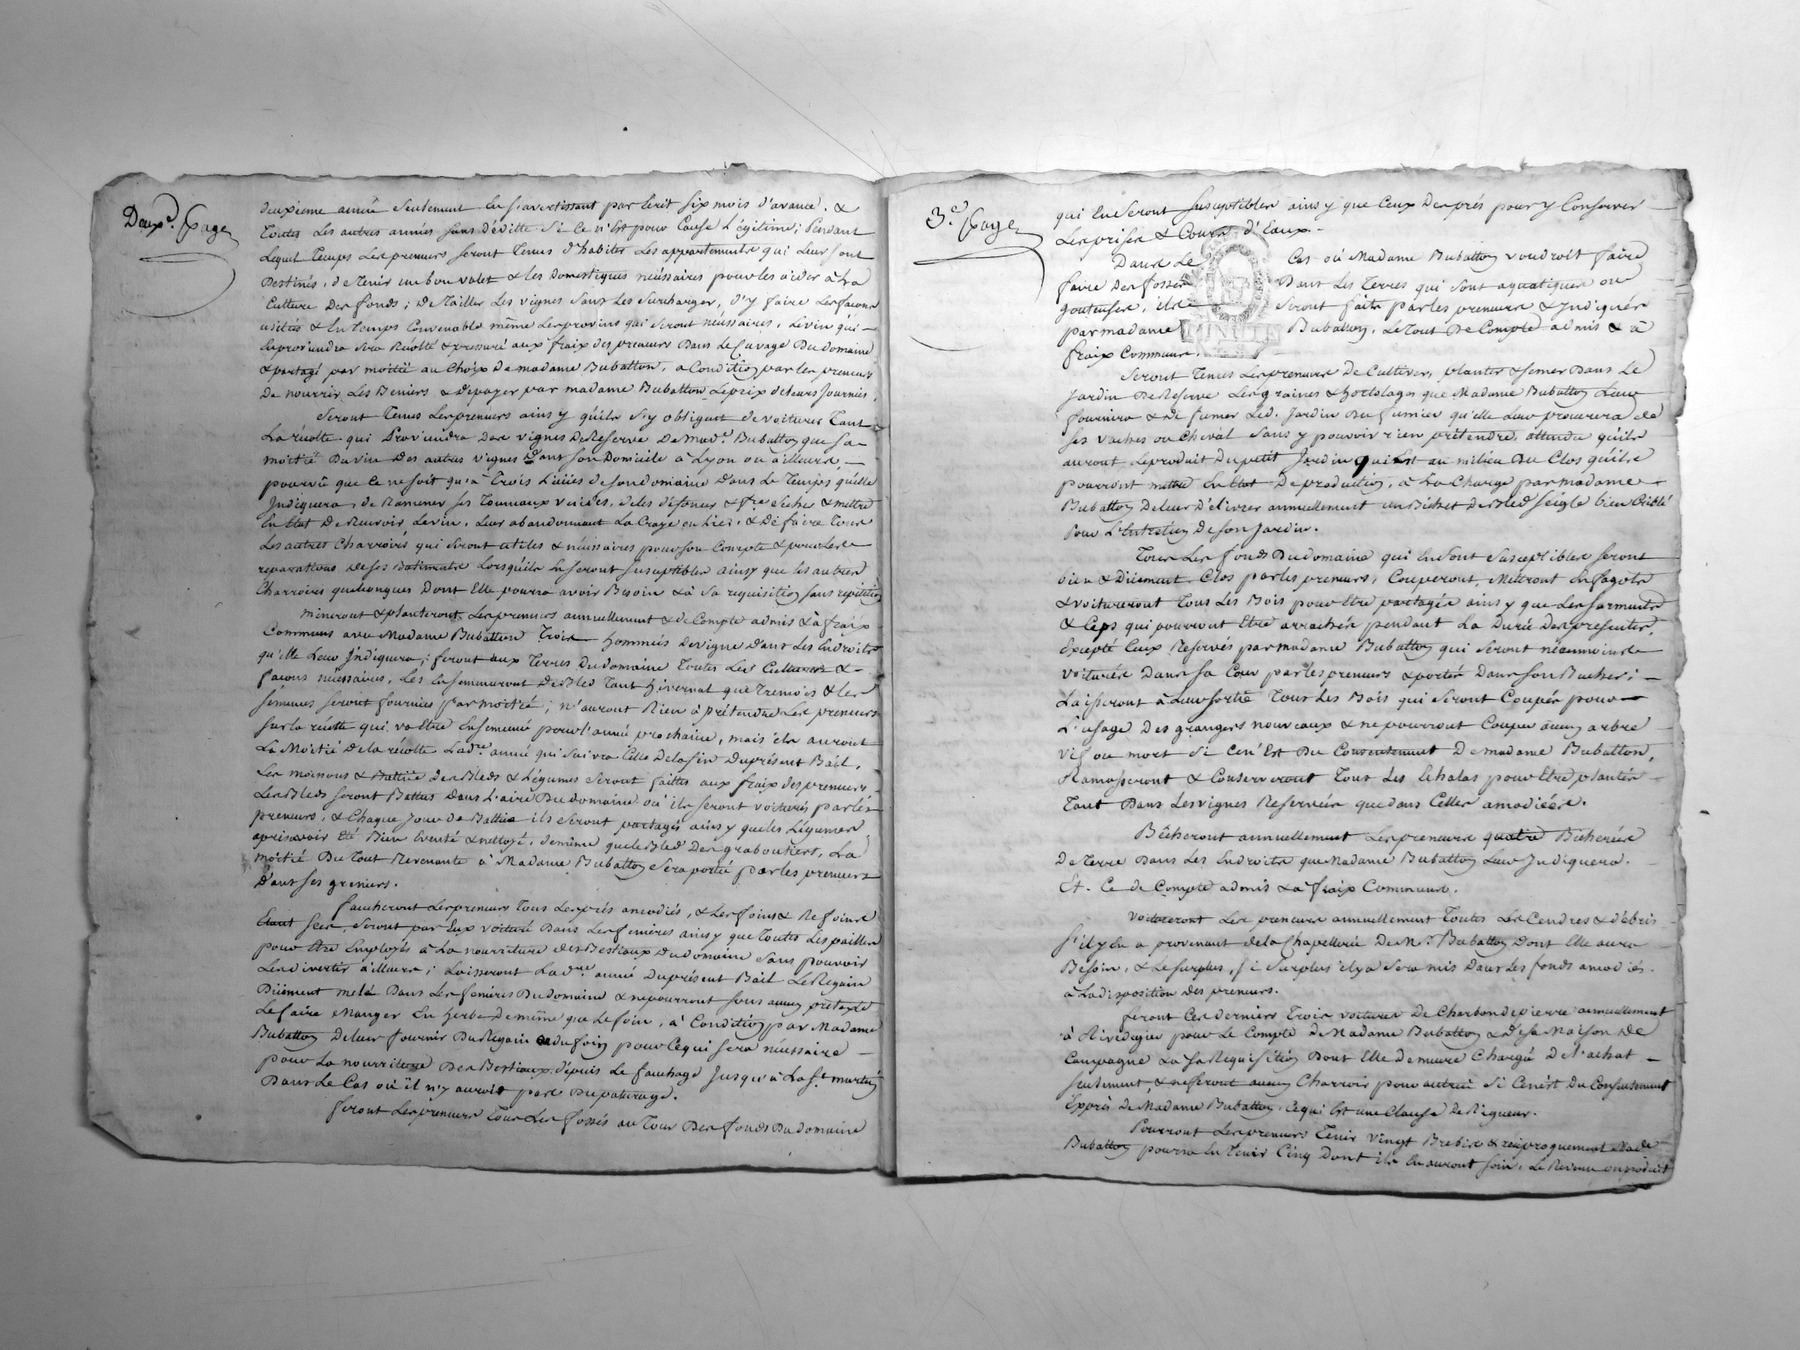 Deux.e Page
deuxieme année Seulement en s'avertissant par Ecrit Six mois d'avance, &
Toutes Les autres années Sans déditte Si Ce n'Est pour Cause Légitime; Pendant
Lequel Temps Les preneurs Seront Tenus d'habiter Les appartements qui Leur Sont
Destinés, de Tenir un bon valet & les domestiques nécessaires pour les aider à La
Culture Des fonds; de Tailler Les vignes Sans Les Surcharger, d'y faire Les façons
usitées & En Temps Convenable même Les provins qui Seront nécessaires, Le vin qui
En proviendra Sera Récolté & pressuré aux fraix des preneurs Dans Le Cuvage Du domaine
& partagé par moitié au Choix De madame Bubatton, a Condition par les preneurs
De nourrir Les Beniers & de payer par madame Bubatton Le prix de leurs Journées.
Seront Tenus Les preneurs ainsy qu'ils S'y obligent de voiturer Tant
La récolte qui Proviendra Des vignes De Reserve De Mad.e Bubatton que Sa
moitié Du vin Des autres vignes Dans Son Domicile à Lyon ou ailleurs,
pourvu que Ce ne soit qu'à Trois Lieües de son domaine Dans Le Temps qu'elle
Indiquera, de Ramener Ses Tonneaux vuides, de les défoncer & f.re Secher & mettre
En Etat De Recevoir Le vin, Leur abandonnant La Craye ou Lies, & De faire Tous
Les autres Charrois qui Seront utiles & nécessaires pour Son Compte & pour Les
reparations de Ses Batiments Lorsqu'ils En Seront Susceptibles ainsy que les autres
Charrois quelconques Dont Elle pourra avoir Besoin & à Sa requisition Sans repetition
Mineront & planteront Les preneurs annuellement & de Compte admis & à fraix
Communs avec Madame Bubatton Trois hommées De vigne Dans Les Endroits
qu'elle Leur Indiquera; feront aux Terres Du domaine Toutes Les Cultures &
façons nécessaires, Les Ensemenceront De Bled Tant hivernal que Tremois & les
Semences Seront fournies par moitié; n'auront Rien à prétendre Les preneurs
Sur la récolte qui va être Ensemencée pour l'année prochaine, mais ils auront
La Moitié De la récolte L'ad.re année qui Suivra Celle De la fin Du présent Bail,
Les moissons & Battüe des Bleds & Légumes Seront faittes aux fraix des preneurs,
Les Bleds Seront Battus Dans L'aire Du domaine où ils Seront voiturés par les
preneurs, & Chaque Jour de Battüe ils Seront partagés ainsy que les Légumes
après avoir Eté Bien Eventé & nettoyé, de même que Le Bled Des graboutters, La
moitié Du Tout Revenante à Madame Bubatton Sera portée par les preneurs
Dans Ses greniers.
faucheront Les preneurs Tous Les prés amodiés, & Les foins & Refoins
Etant Secs, Seront par Eux voiturés Dans Les fenieres ainsy que Toutes Les pailles
pour être Employés à La nourriture des Bestiaux Du domaine Sans pouvoir
Les divertir ailleurs; Laisseront L'ad.re année Du présent Bail Le Regain
Düement melé Dans Les fenieres Du domaine & ne pourront Sous aucun prétexte
Le faire Manger En herbe de même que Le foin, à Condition par Madame
Bubatton De leur fournir Du Regain ou du foin pour Ce qui Sera nécessaire
pour La nourriture Des Bestiaux depuis Le fauchage Jusqu'à La S.t martin
Dans Le Cas où il n'y auroit pas De paturage.
feront Les preneurs Tous Les fossés au Tour Des fonds Du domaine
3.e Page
qui En Seront Susceptibles ainsy que Ceux Des prés pour y Conserver
Les prises & Cours d'Eaux.
Dans Le Cas où Madame Bubatton voudroit faire
faire Des fossés Dans Les Terres qui Sont aquatiques ou
gouteuses, ils Seront faits par les preneurs & Indiqués
par madame Bubatton, Le Tout De Compte admis & à
fraix Communs.
Seront Tenus Les preneurs De Cultiver, planter & Semer Dans Le
Jardin De Reserve Les graines & hortolages que Madame Bubatton Leur
fournira & De fumer Led. Jardin Du fumier qu'elle Leur procurera de
Ses vaches ou Cheval Sans y pouvoir rien prétendre, attendu qu'ils
auront Le produit Du petit Jardin qui Est au milieu Du Clos qu'ils
pourront mettre En Etat De production, à La Charge par madame
Bubatton De leur délivrer annuellement un Bichet De Bled Seigle bien Criblé
Pour L'Entretien De Son Jardin.
Tous Les fonds Du domaine qui En Sont Susceptibles Seront
bien & Düement Clos par les preneurs, Couperont, Mettront En fagots
& voitureront Tous Les Bois pour être partagés ainsy que Les Sarments
& Ceps qui pourront être arrachés pendant La Durée Des presentes,
Excepté Ceux Reservés par madame Bubatton qui Seront néanmoins
voiturés Dans Sa Cour par les preneurs & portés Dans Son Bucher;
Laisseront à Leur Sortie Tous Les Bois qui Seront Coupés pour
L'usage Des grangers nouveaux & ne pourront Couper aucun arbre
vif ou mort Si Ce n'Est Du Consentement De madame Bubatton,
Ramasseront & Conserveront Tous Les Echalas pour être plantés
Tant Dans Les vignes Reservées que dans Celles amodiées.
Bêcheront annuellement Les preneurs quatre Bicherées
De Terre Dans Les Endroits que Madame Bubatton Leur Indiquera.
Et Ce de Compte admis & à fraix Communs.
Voitureront Les preneurs annuellement Toutes Les Cendres & débris
S'il y En a provenant de la Chapellerie De M.r Bubatton Dont Elle aura
Besoin, & Le Surplus, Si Surplus il y a Sera mis Dans Les fonds amodiés
à La disposition Des preneurs.
feront Ces derniers Trois voitures De Charbon de pierre annuellement
à Rivedegier pour Le Compte de Madame Bubatton & à Sa Maison De
Campagne & à Sa Requisition Dont Elle demeure Chargée De l'achat
Seulement, & ne feront aucun Charroir pour autrui Si Ce n'est Du Consentement
Exprès de Madame Bubatton, Ce qui Est une Clause De Rigueur.
Pourront Les preneurs Tenir vingt Brebis & réciproquement Mad.e
Bubatton pourra En Tenir Cinq Dont ils En auront Soin, Le Revenu ou produit